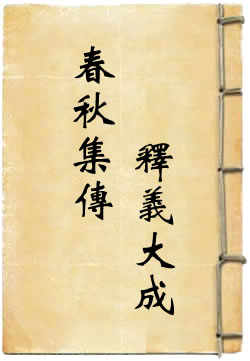 春秋集傳
釋義大成